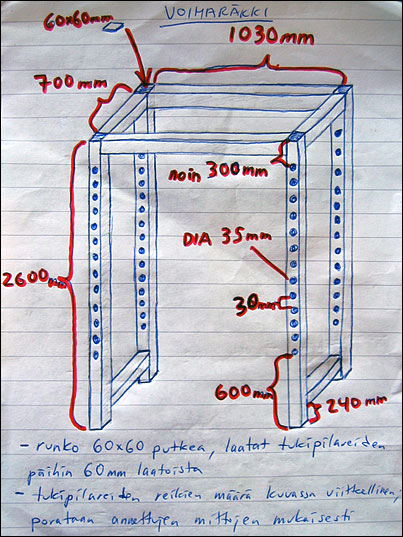 VOIMARÄKKI
60x60mm
1030mm
700mm
noin 300mm
DIA 35mm
2600mm
30mm
600mm
240mm
- runko 60x60 putkea, laatat tukipilareiden
päihin 60mm laatoista
- tukipilareiden reikien määrä kuvassa viitteellinen,
porataan annettujen mittojen mukaisesti